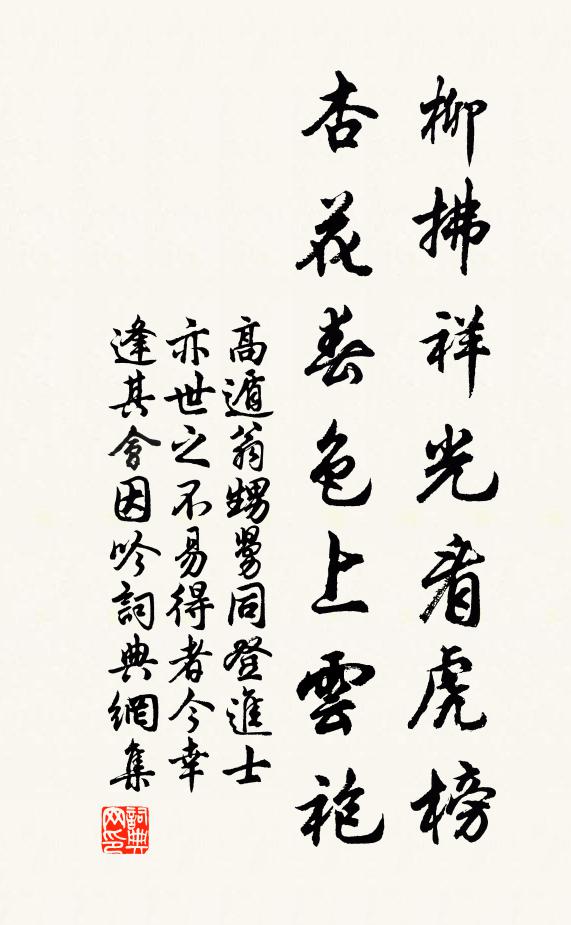 柳拂祥光看虎榜
杏花春色上雲袍
高遁翁甥舅同登進士
亦世之不易得者今幸
逢其會因吟詞典網集
詞典
网印